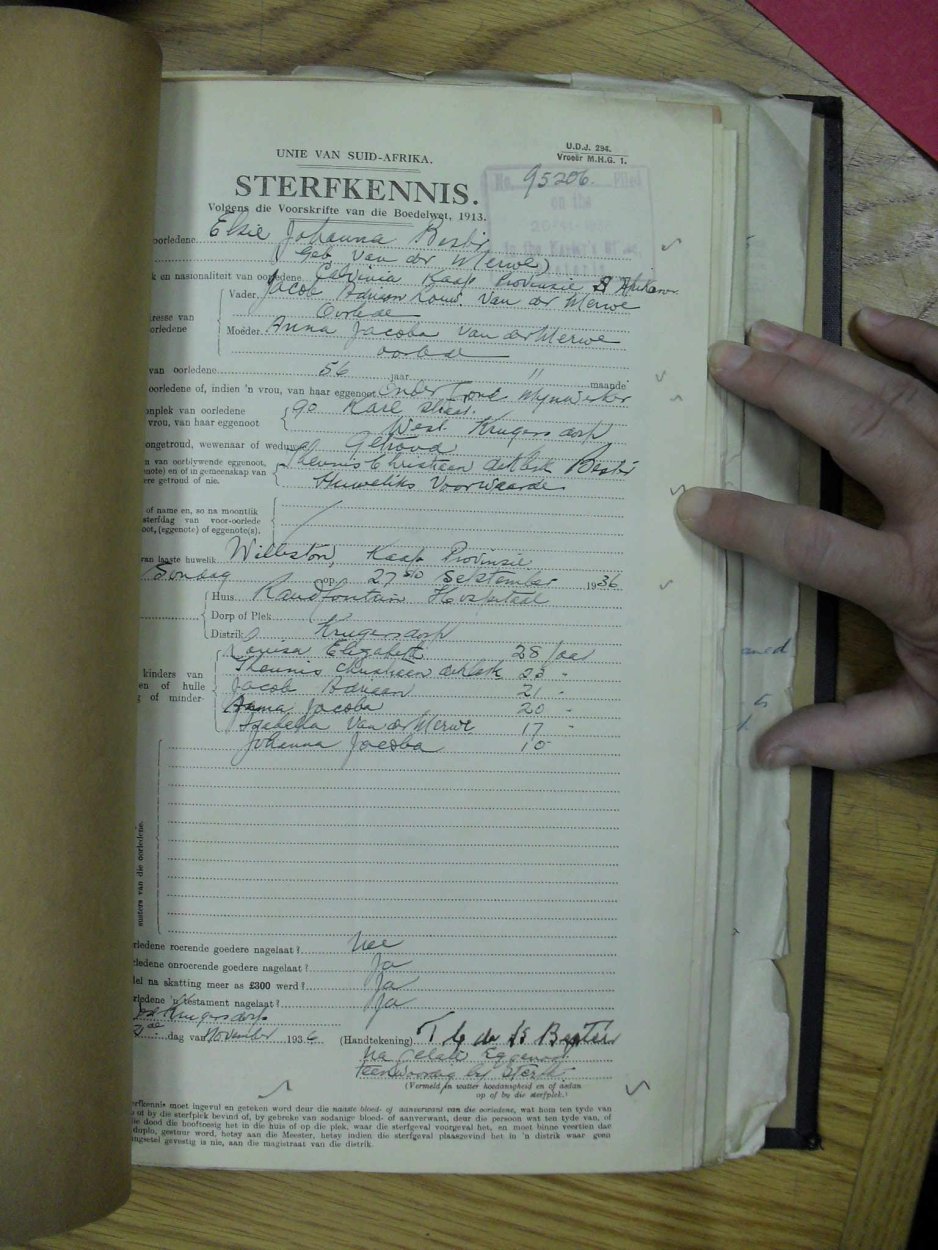 UNIE VAN SUID-AFRIKA.
U.D.J. 294.
Vroeër M.H.G. 1.
STERFKENNIS.
No. 95206. Filed
on the
Volgens die Voorskrifte van die Boedelwet, 1913.
oorledene Elsie Johanna Bester
(geb van der Merwe)
k en nasionaliteit van oorledene Calvinia Kaap Provinsie S Afrikaner
Vader Jacob Adriaan Louw van der Merwe
Oorlede
dresse van
oorledene
Moeder Anna Jacoba van der Merwe
oorlede
van oorledene 56 jaar " maande
oorledene of, indien 'n vrou, van haar eggenoot Mynwerker
onplek van oorledene 90 Karl Straat.
vrou, van haar eggenoot West Krugersdorp
ongetroud, wewenaar of weduwee Getroud
n van oorblywende eggenoot, Theunis Christiaan de Klerk Bester
note) en of in gemeenskap van
ere getroud of nie. Huweliks Voorwaarde
of name en, so na moontlik
sterfdag van voor-oorlede
oot, (eggenote) of eggenote(s).
van laaste huwelik Williston, Kaap Provinsie
Sondag op 27ste September 1936
Huis Randfontein Hospitaal
Dorp of Plek
Distrik Krugersdorp
Louisa Elizabeth 28 jaar
Theunis Christiaan deKlerk 23 "
kinders van
en of hulle
g of minder-
Jacob Adriaan 21 "
Anna Jacoba 20 "
Isabella van der Merwe 17 "
Johanna Jacoba 15
usters van die oorledene.
rledene roerende goedere nagelaat? Nee
rledene onroerende goedere nagelaat? Ja
del na skatting meer as £300 werd? Ja
rledene 'n testament nagelaat? Ja
Krugersdorp
dag van November 1936
(Handtekening) T C de K Bester
Na gelate Eggenoot
teenwoordig by Sterfte.
(Vermeld in watter hoedanigheid en of aldan
op of by die sterfplek.)
terfkennis moet ingevul en geteken word deur die naaste bloed- of aanverwant van die oorledene, wat hom ten tyde van
d ot by die sterfplek bevind of, by gebreke van sodanige bloed- of aanverwant, deur die persoon wat ten tyde van, of
ie dood die hooftoesig het in die huis of op die plek, waar die sterfgeval voorgeval het, en moet binne veertien dae
duplo, gestuur word, hetsy aan die Meester, hetsy indien die sterfgeval plaasgevind het in 'n distrik waar geen
ngsetel gevestig is nie, aan die magistraat van die distrik.